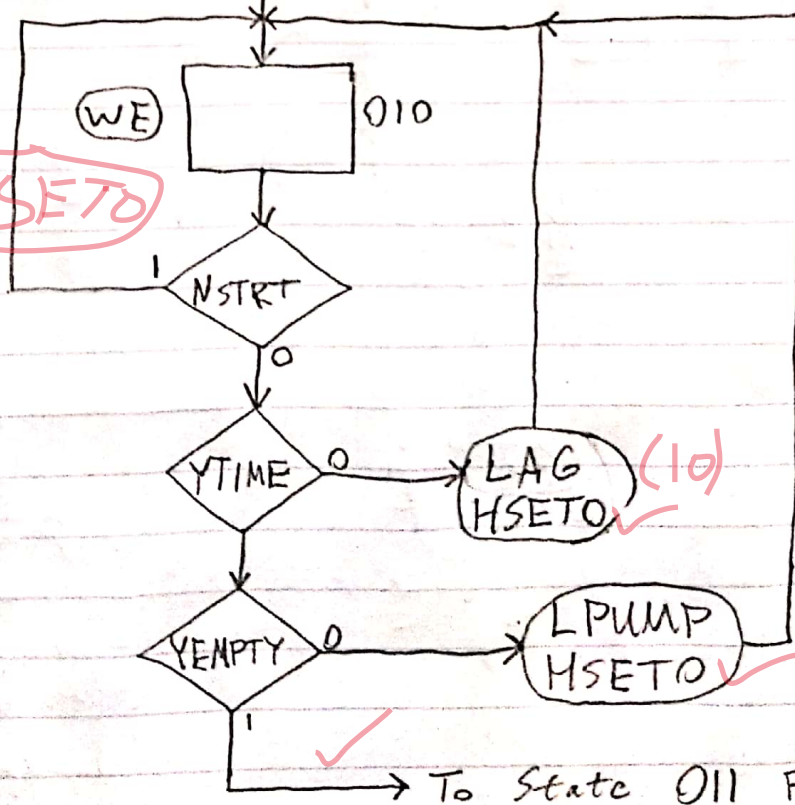 WE
010
SETO
1
NSTRT
0
YTIME
0
LAG
HSETO
(10)
YEMPTY
0
LPUMP
HSETO
1
To State 011